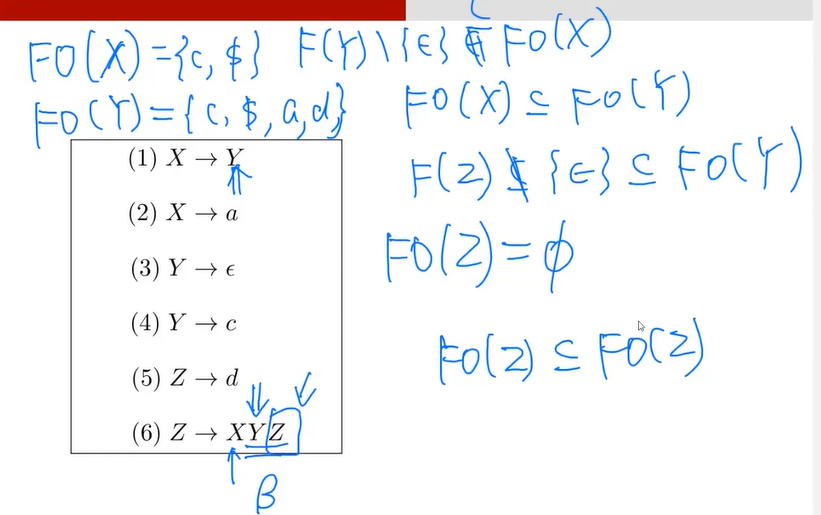 FO(X)={c, $} F(Y)\{ϵ} ⊆ FO(X)
FO(Y)={c, $, a, d,}
FO(X) ⊆ FO(Y)
F(Z) \ {ϵ} ⊆ FO(Y)
FO(Z)=ϕ
FO(Z) ⊆ FO(Z)
(1) X → Y
(2) X → a
(3) Y → ϵ
(4) Y → c
(5) Z → d
(6) Z → XYZ
β